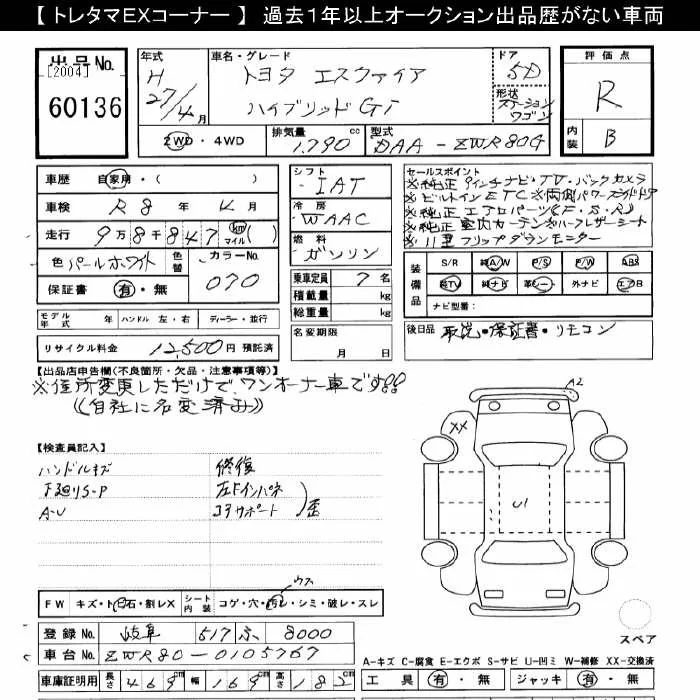 【 トレタマEXコーナー 】 過去１年以上オークション出品歴がない車両
出品No.
[2004]
60136
年式
H
27/4月
車名・グレード
トヨタ エスクァイア
ハイブリッドGi
ドア
5D
形状
ステーションワゴン
評価点
R
内装
B
2WD・4WD
排気量
1.790 cc
型式
DAA-ZWR80G
車歴 自家用・( )
車検 R8年4月
走行 9万8千847 km マイル ( )
色 パールホワイト 色替
カラーNo. 070
保証書 有・無
モデル年式 年 ハンドル 左・右 ディーラー・並行
リサイクル料金 12,500円 預託済
シフト
IAT
冷房
WAAC
燃料
ガソリン
乗車定員 7名
積載量 kg
総重量 kg
名変期限
月 日
セールスポイント
※純正9インチナビ・TV・バックカメラ
※ビルトインETC※両側パワースライドドア
※純正エアロパーツ(F・S・R)
※純正室内カーテン※ハーフレザーシート
※11型フリップダウンモニター
装備品
S/R 純A/W P/S P/W ABS
純TV 純ナビ 革シート 外ナビ エアB
ナビ型番：
後日品 取説・保証書・リモコン
【出品店申告欄(不良箇所・欠品・注意事項等)】
※住所変更しただけで、ワンオーナー車です!!
((自社に名変済み))
【検査員記入】
ハンドルキズ
下廻りS-P
A・U
修復
左Fインパネ
コアサポート
歪
A2
XX
U1
FW キズ・ト 石・割レX
シート内装 コゲ・穴・汚レ・シミ・破レ・スレ
ウス
登録No. 岐阜 517 ふ 8000
車台No. ZWR80-0105767
車庫証明用 長さ 469cm 幅 169cm 高さ 182cm
スペア
A-キズ C-腐食 E-エクボ S-サビ U-凹ミ W-補修 XX-交換済
工具 有・無 ジャッキ 有・無